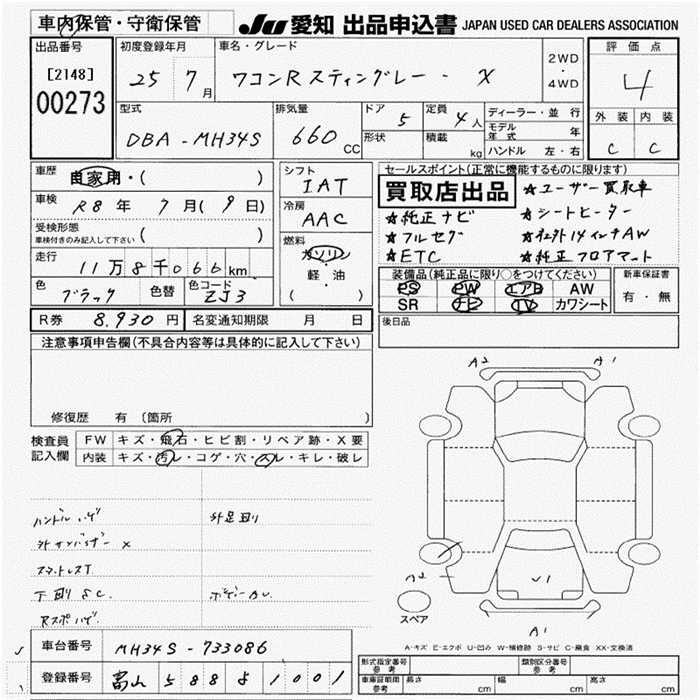 車内保管・守衛保管
JU 愛知 出品申込書 JAPAN USED CAR DEALERS ASSOCIATION
出品番号
[2148]
00273
初度登録年月
25 7月
車名・グレード
ワゴンR スティングレー - X
2WD
・
4WD
評価点
4
外装 内装
C C
型式
DBA - MH34S
排気量
660 CC
ドア 5
形状
定員 4人
積載 kg
ディーラー・並行
モデル年式 年
ハンドル 左・右
車歴
自家用・( )
車検
R8年 7月(9日)
受検形態
車検付きのみ記入して下さい ( )
走行
11万8千066km
色
ブラック
色替
色コード
ZJ3
シフト
IAT
冷房
AAC
燃料
ガソリン
軽・油
( )
セールスポイント(正常に機能するものに限ります)
買取店出品
★ユーザー買取車
★純正ナビ
★シートヒーター
★フルセグ
★社外14インチAW
★ETC
★純正フロアマット
装備品(純正品に限り○をつけてください)
PS PW エアB AW
SR ナビ TV カワシート
新車保証書
有・無
R券 8,930円
名変通知期限 月 日
後日品
注意事項申告欄(不具合内容等は具体的に記入して下さい)
修復歴 有 〔箇所
検査員
記入欄
FW キズ・飛石・ヒビ割・リペア跡・X要
内装 キズ・汚レ・コゲ・穴・スレ・キレ・破レ
ハンドルハゲ
外足回り
外サンバイザー X
下回りSC
A2 A1
A2
U1
A1
スペア
A-キズ E-エクボ U-凹み W-補修跡 S-サビ C-腐食 XX-交換済
車台番号 MH34S-733086
登録番号 富山 588 す 1001
形式指定番号
参考
類別区分番号
参考
車庫証明欄
参考
長さ cm 幅 cm 高さ cm